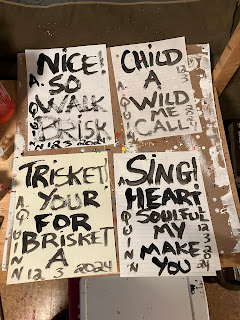 NICE!
SO
WALK
BRISK
A. QUINN 12 3 2024
CHILD
A
WILD
ME
CALL
A. QUINN
12
3
2024
TRISKET!
YOUR
FOR
BRISKET
A
A. QUINN 12 3 2024
SING!
HEART
SOULFUL
MY
MAKE
YOU
A. QUINN
12
3
2024